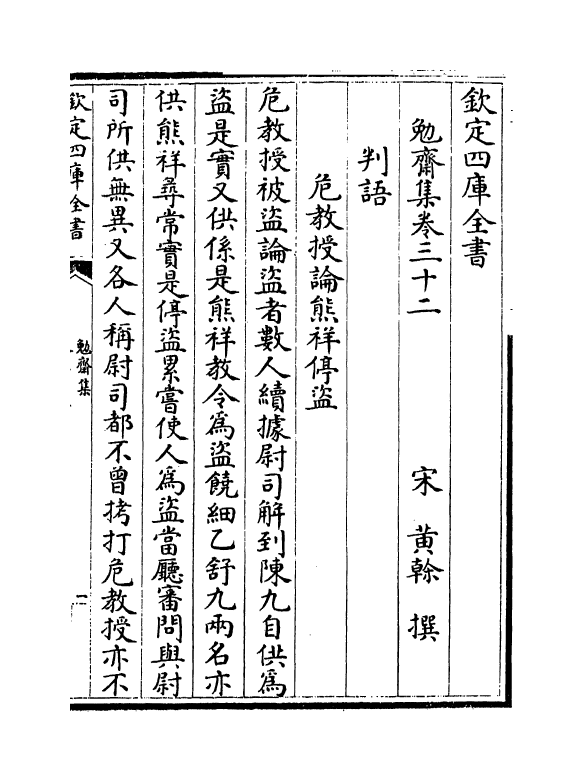 欽定四庫全書
勉齋集卷三十二
宋 黃榦 撰
判語
危教授論熊祥停盜
危教授被盜論盜者數人續據尉司解到陳九自供為
盜是實又供係是熊祥教令為盜饒細乙舒九兩名亦
供熊祥尋常實是停盜累嘗使人為盜當廳審問與尉
司所供無異又各人稱尉司都不曾拷打危教授亦不
欽定四庫全書
勉齋集